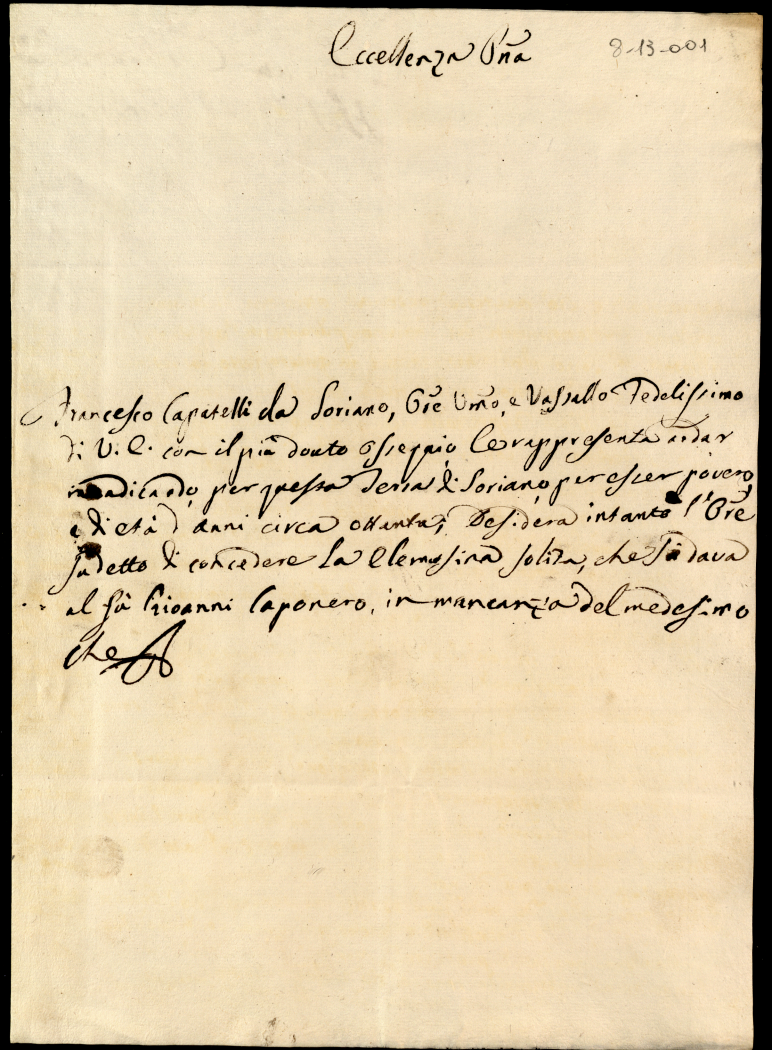 Eccellenza Pñã
8-13-001
Francesco Capatelli da Soriano, Ore Umo, e Vassallo Fedelissimo
di V. E. con il più douto osseqiio, le rappresenta andar
mendicando, per questa Terra di Soriano per esser povero,
e di età d'anni circa ottanta; Desidera intanto l'Ore
sudetto di concedere la Elemosina solita, che si dava
al fù Gioanni Caponero, in mancanza del medesimo
che